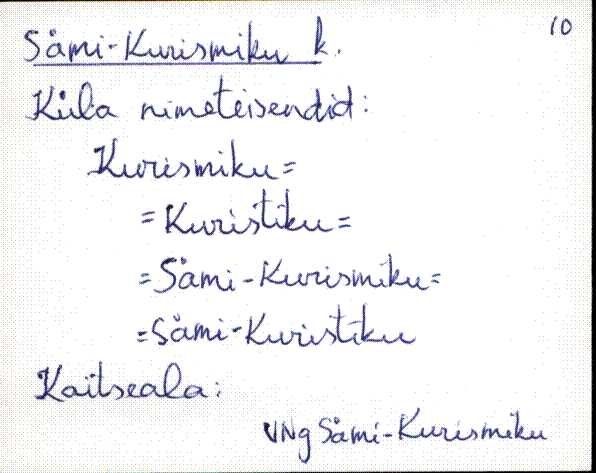 10
Sämi-Kurismiku k.
Küla nimeteisendid:
Kurismiku=
=Kuristiku=
=Sämi-Kurismiku=
=Sämi-Kuristiku
Kaitseala:
VNg Sämi-Kurismiku